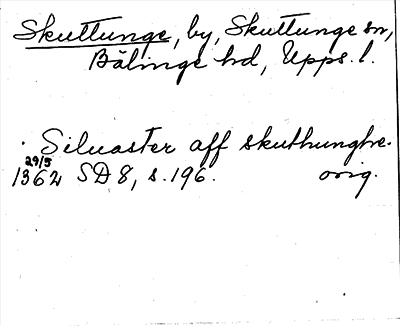 Skuttunge, by, Skuttunge sn,
Bälinge hd, Upps. l.
Siluaster aff skuthunghe.
29/5
1362 SD 8, s. 196. orig.